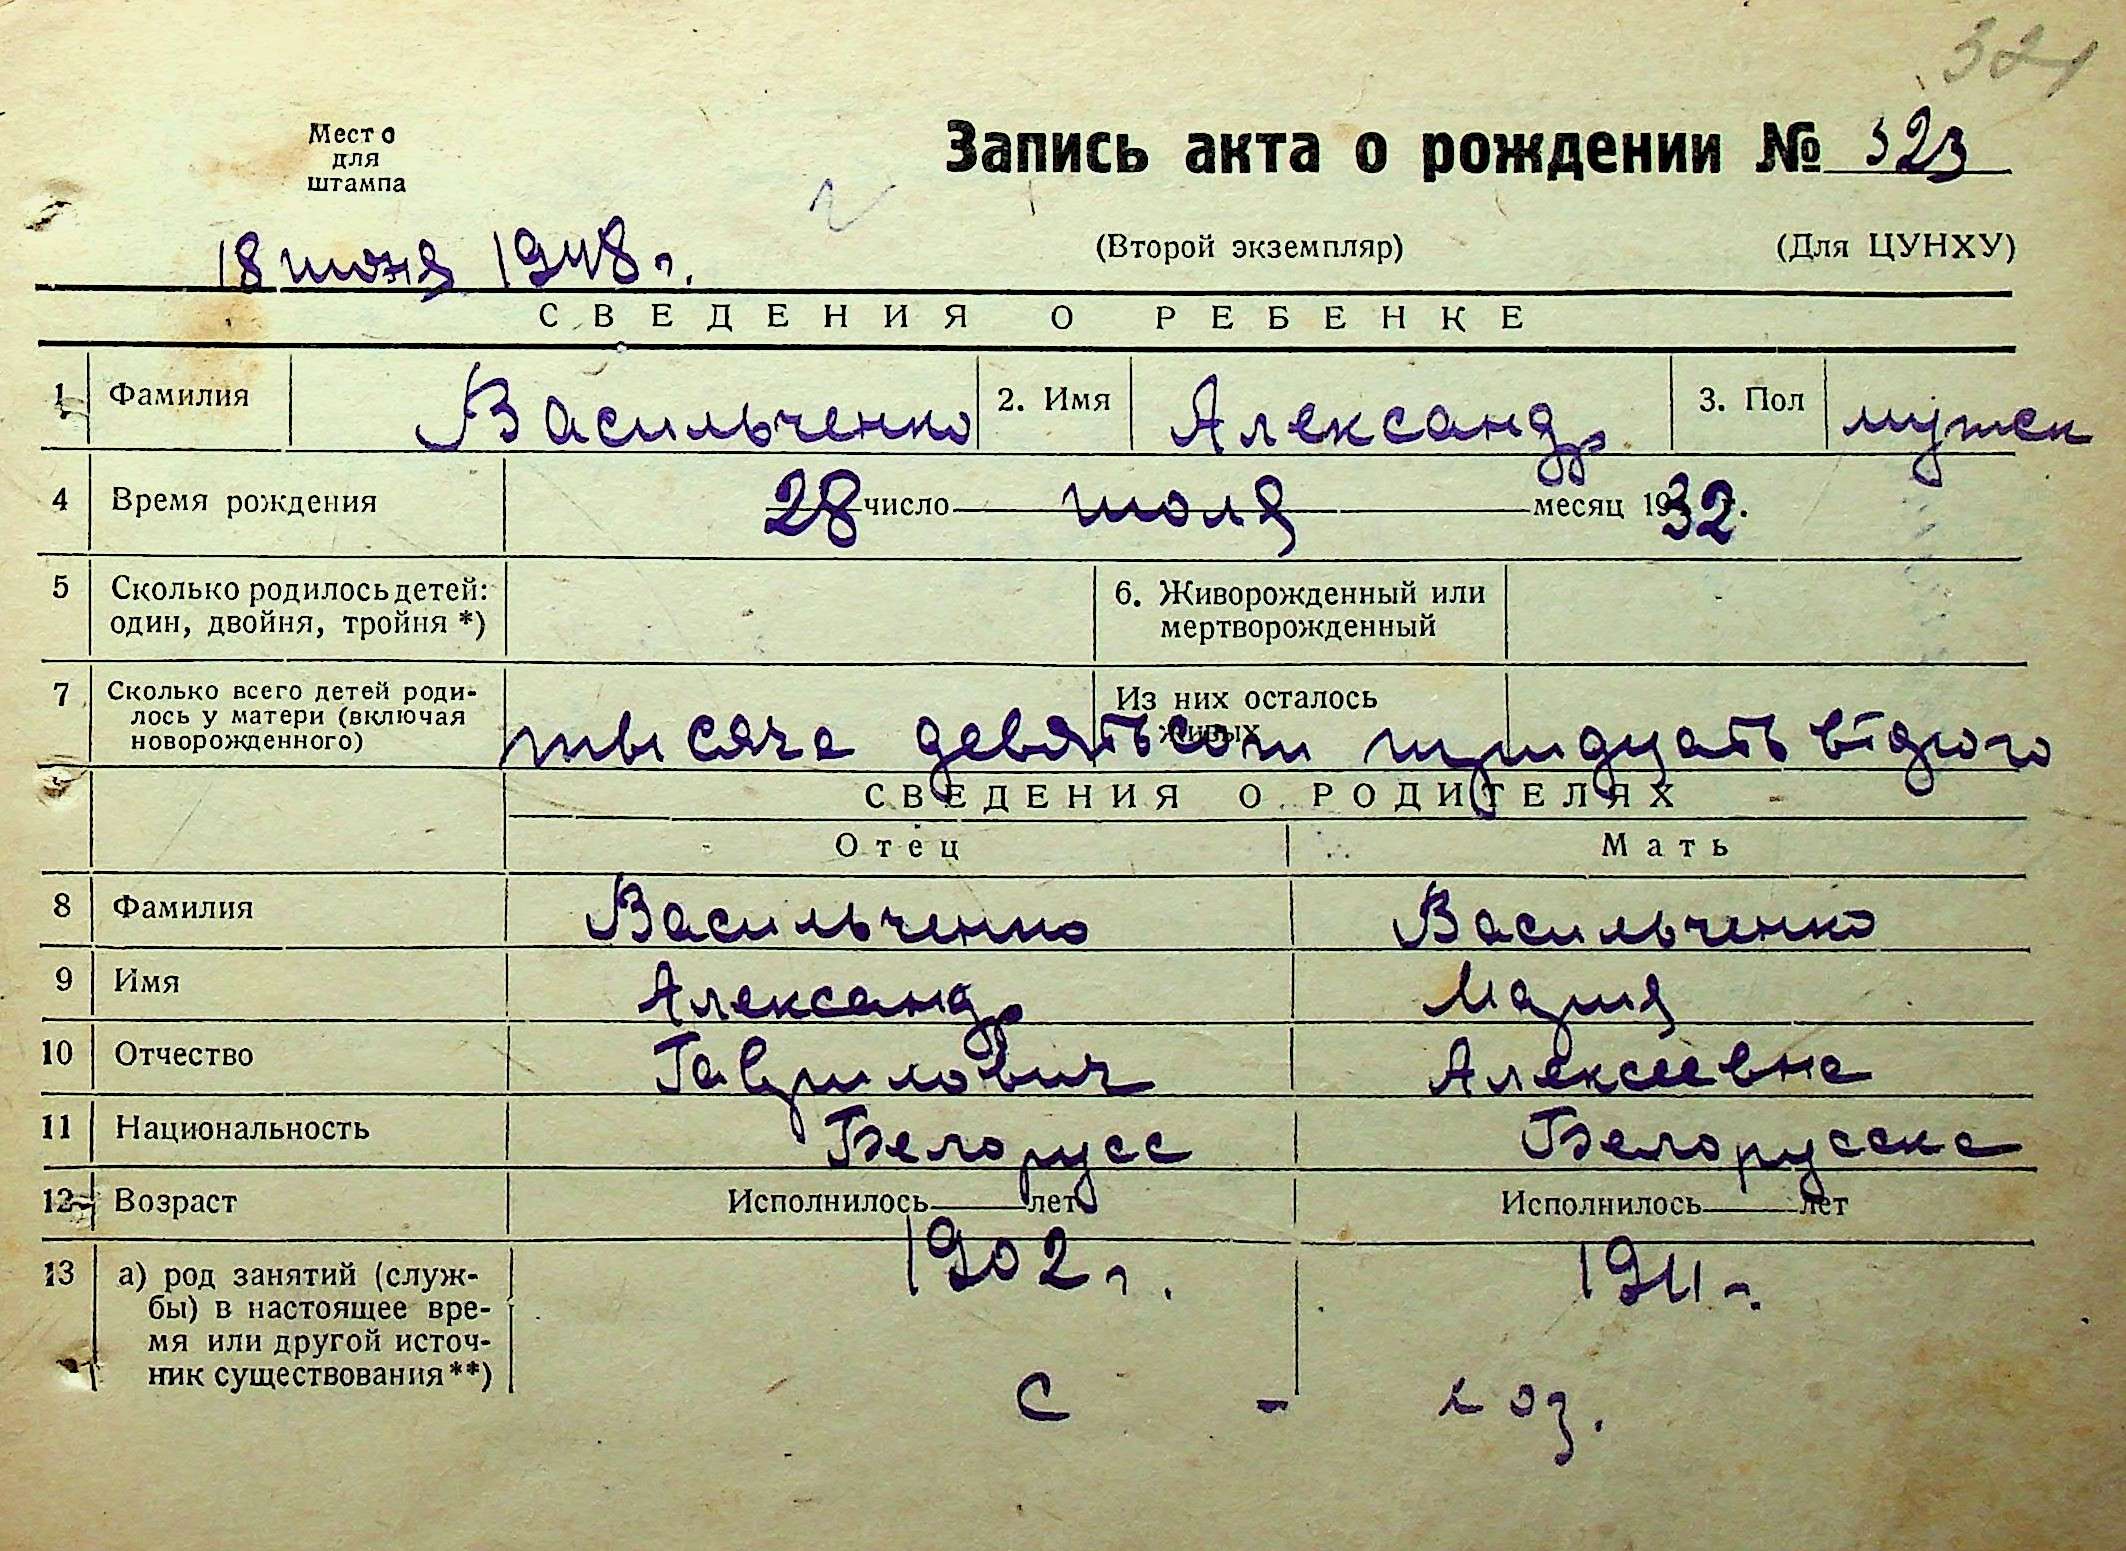 321
Место
для
штампа
Запись акта о рождении № 323
18 июня 1948 г.
(Второй экземпляр)
(Для ЦУНХУ)
СВЕДЕНИЯ О РЕБЕНКЕ
1 Фамилия Васильченко 2. Имя Александр 3. Пол мужск
4 Время рождения 28 число июля месяц 1932 г.
5 Сколько родилось детей: 6. Живорожденный или
один, двойня, тройня *) мертворожденный
7 Сколько всего детей роди- Из них осталось
лось у матери (включая живых
новорожденного)
тысяча девятьсот тридцать второго
СВЕДЕНИЯ О РОДИТЕЛЯХ
Отец Мать
8 Фамилия Васильченко Васильченко
9 Имя Александр Мария
10 Отчество Гаврилович Алексеевна
11 Национальность Белорусс Белорусска
12 Возраст Исполнилось лет Исполнилось лет
1902 г. 1911 г.
13 а) род занятий (служ-
бы) в настоящее вре-
мя или другой источ-
ник существования **)
С - хоз.